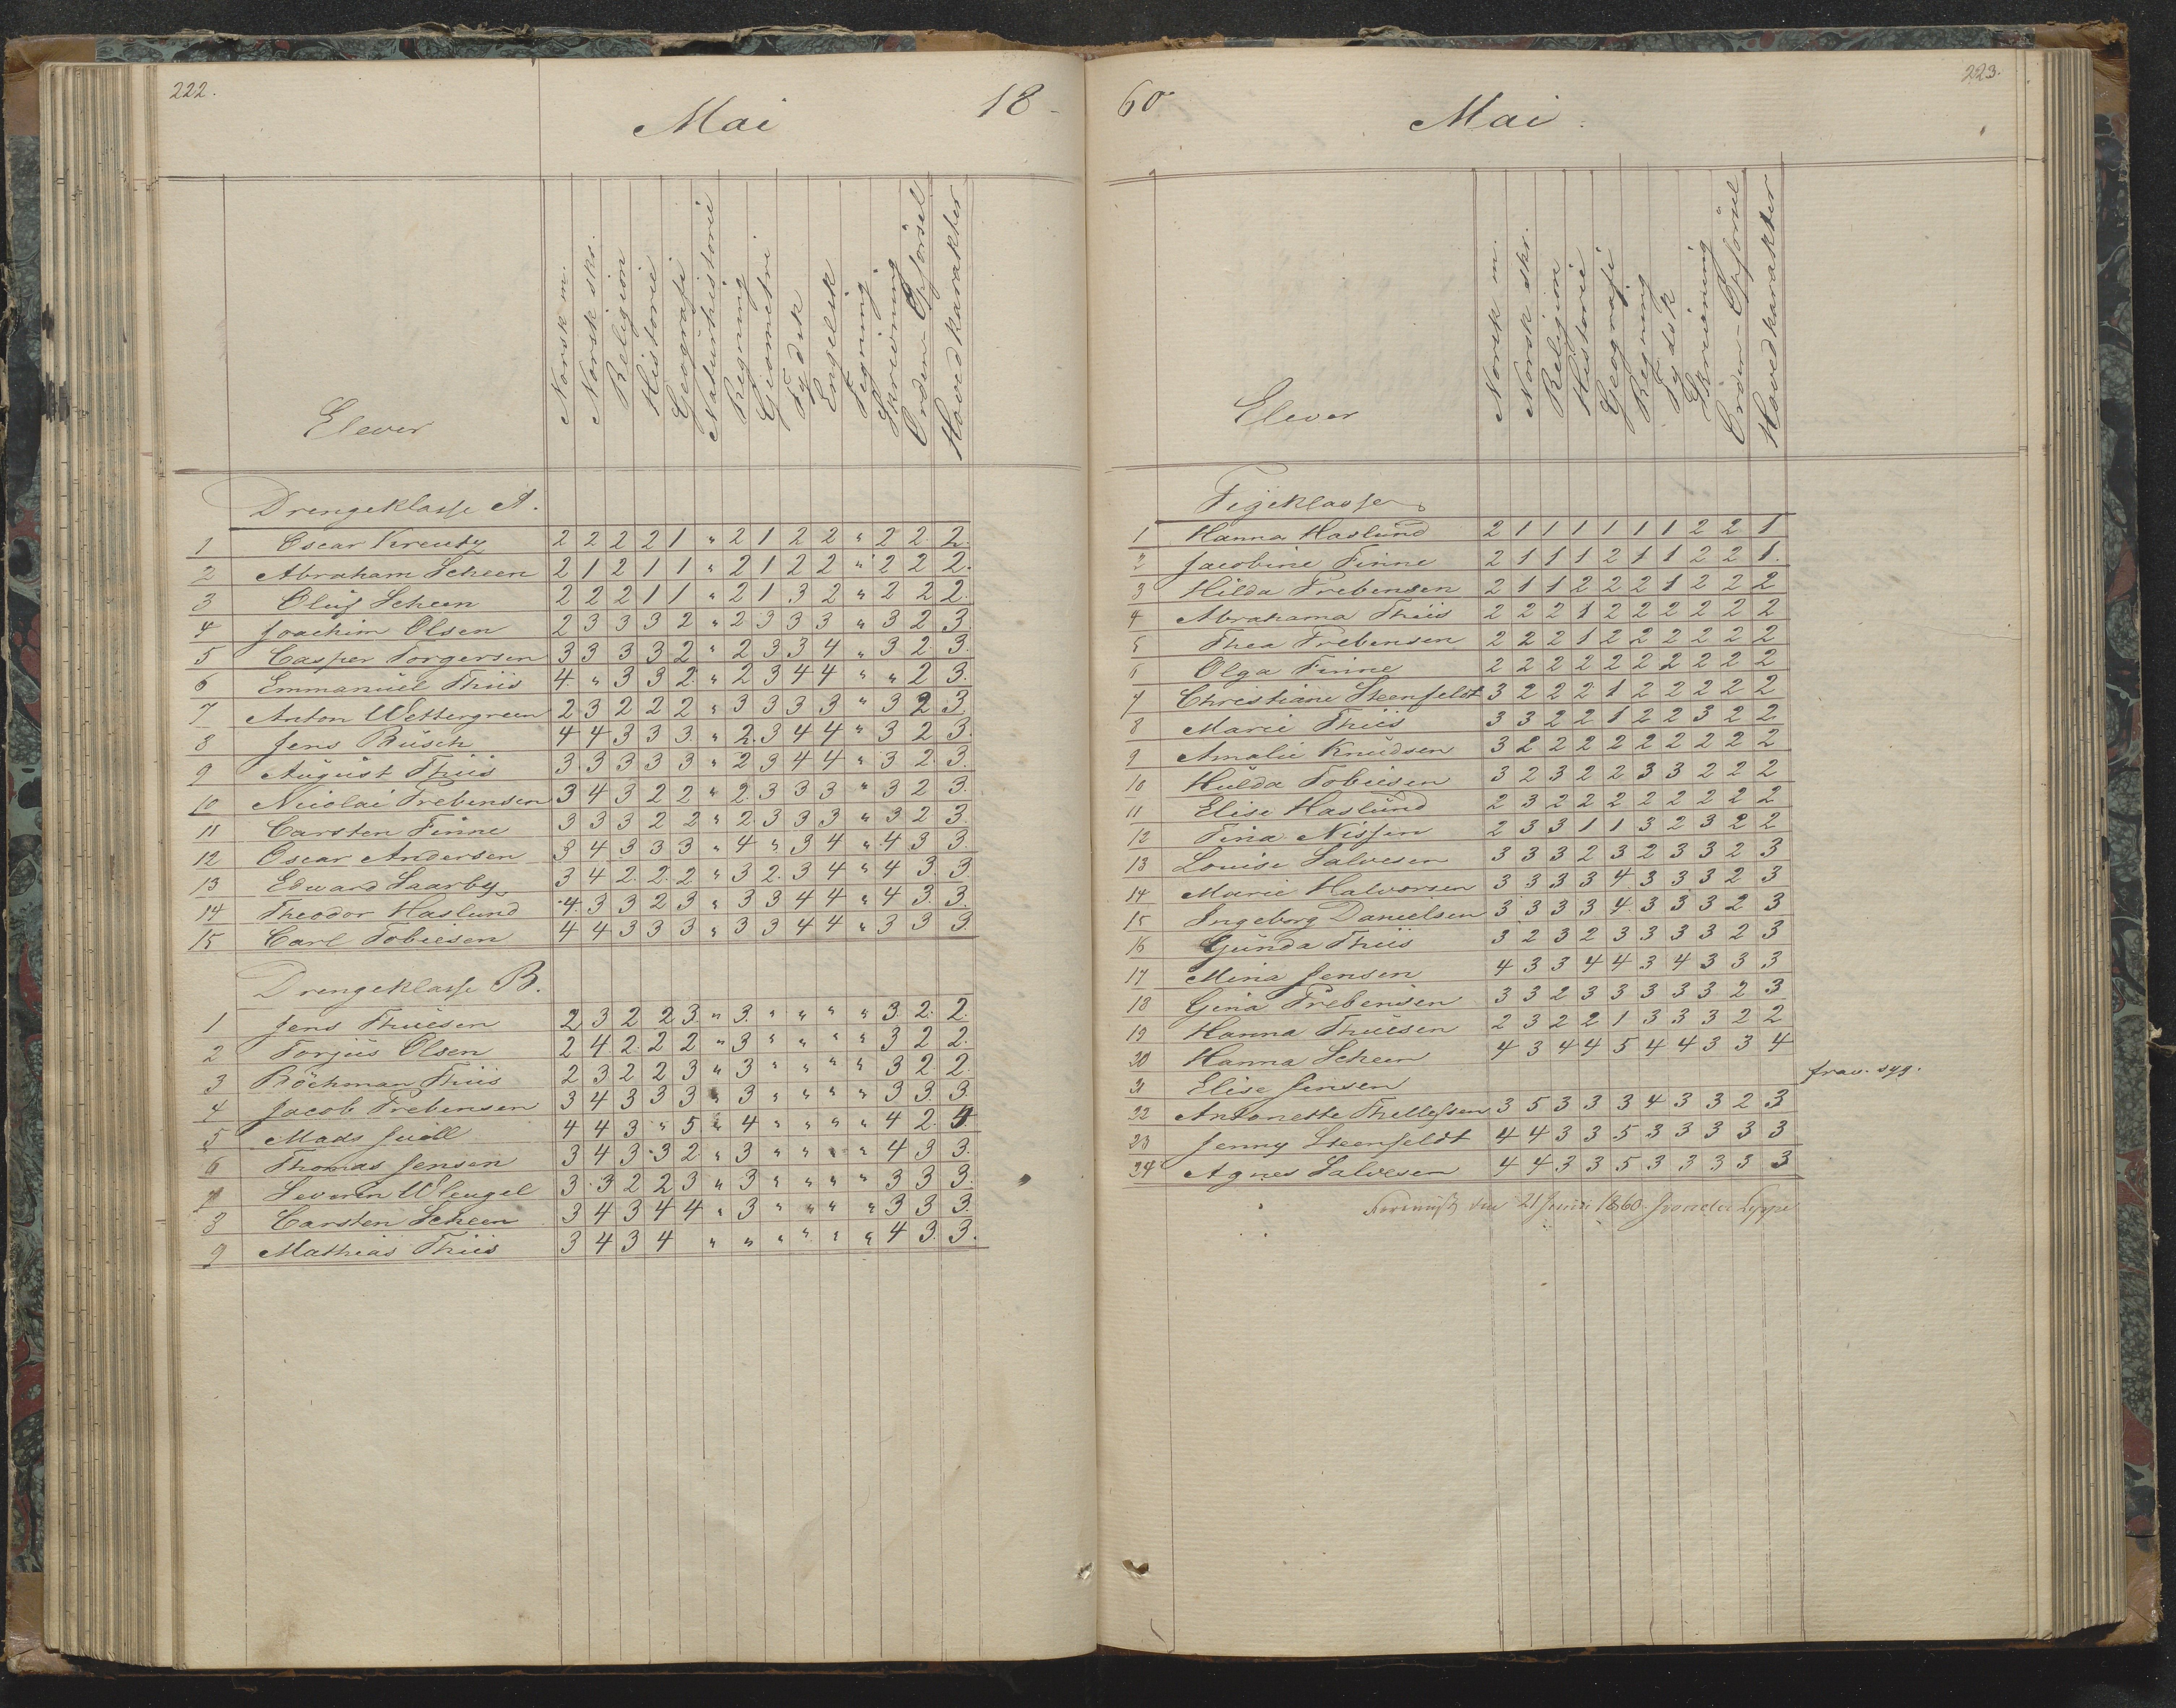 222.
Mai
18
Elever
Norsk m.
Norsk skr.
Religion
Historie
Geografi
Naturhistorie
Regning
Geometri
Tydsk
Engelsk
Tegning
Skrivning
Orden-Opförsel
Hovedkarakter
Drengeklasse A.
1 Oscar Kreutz 2 2 2 2 1 " 2 1 2 2 " 2 2. 2.
2 Abraham Scheen 2 1 2 1 1 " 2 1 2 2 " 2 2 2.
3 Oluf Scheen 2 2 2 1 1 " 2 1 3 2 " 2 2 2.
4 Joachim Olsen 2 3 3 3 2 " 2 3 3 3 " 3 2 3
5 Casper Torgersen 3 3 3 3 2 " 2 3 3 4 " 3 2. 3.
6 Emmanuel Thiis 4. " 3 3 2. " 2 3 4 4 " " 2 3.
7 Anton Wettergreen 2 3 2 2 2 " 3 3 3 3 " 3 2 3
8 Jens Busch 4 4 3 3 3 " 2. 3 4 4 " 3 2 3.
9 August Thiis 3. 3 3 3 3 " 2 3 4 4 " 3 2. 3.
10 Nicolai Prebensen 3 4 3 2 2 " 2. 3 3 3 " 3 2 3.
11 Carsten Finne 3 3 3 2 2 " 2. 3 3 3 " 3 2 3.
12 Oscar Andersen 3 4 3 3 3 " 4 " 3 4 " 4 3 3.
13 Edward Saarby 3 4 2. 2. 2 " 3 2. 3 4 " 4 3. 3.
14 Theodor Haslund 4. 3 3 2 3 " 3 3 4 4 " 4 3. 3.
15 Carl Tobiesen 4 4 3 3 3 " 3 3 4 4 " 3 3 3.
Drengeklasse B.
1 Jens Thuesen 2 3 2 2 3 " 3. " " " " 3. 2. 2.
2 Torjus Olsen 2 4 2. 2 2 " 3 " " " " 3 2 2.
3 Böckman Thiis 2 3 2 2 3 " 3 " " " " 3 2 2.
4 Jacob Prebensen 3 4 3 3 3 " 3 " " " " 3 3. 3.
5 Mads Juell 4 4 3 " 5 " 4 " " " " 4 2. 4.
6 Thomas Jensen 3 4 3 3 2 " 3 " " " " 4 3 3.
7 Severin Wleugel 3 3 2 2 3 " 3 " " " " 3 3 3.
8 Carsten Scheen 3 4 3 4 4 " 3 " " " " 3 3 3.
9 Mathias Thiis 3 4 3 4 " " " " " " 4 3. 3.
60
223.
Mai.
Elever
Norsk m.
Norsk skr.
Religion
Historie
Geografi
Regning
Tydsk
Skrivning
Orden-Opförsel
Hovedkarakter
Pigeklasse
1 Hanna Haslund 2 1 1 1 1 1 1 2 2 1
2 Jacobine Finne 2 1 1 1 2 1 1 2 2 1.
3 Hilda Prebensen 2 1 1 2 2 2 1 2 2 2
4 Abrahama Thiis 2 2 2 1 2 2 2 2 2 2
5 Thea Prebensen 2 2 2 1 2 2 2 2 2 2
6 Olga Finne 2 2 2 2 2 2 2 2 2 2
7 Christiane Steenfeldt 3 2 2 2 1 2 2 2 2 2
8 Marie Thiis 3 3 2 2 1 2 2 3 2 2
9 Amalie Knudsen 3 2 2 2 2 2 2 2 2 2
10 Hulda Tobiesen 3 2 3 2 2 3 3 2 2 2
11 Elise Haslund 2 3 2 2 2 2 2 2 2 2
12 Tina Nissen 2 3 3 1 1 3 2 3 2 2
13 Louise Salvesen 3 3 3 2 3 2 3 3 2 3
14 Marie Halvorsen 3 3 3 3 4 3 3 3 2 3
15 Ingeborg Danielsen 3 3 3 3 4 3 3 3 2 3
16 Gunda Thiis 3 2 3 2 3 3 3 3 2 3
17 Mina Jensen 4 3 3 4 4 3 4 3 3 3
18 Gina Prebensen 3 3 2 3 3 3 3 3 2 3
19 Hanna Thuesen 2 3 2 2 1 3 3 3 2 2
20 Hanna Scheen 4 3 4 4 5 4 4 3 3 4
21 Elise Jensen frav. syg.
22 Antonette Thellefsen 3 5 3 3 3 4 3 3 2 3
23 Jenny Steenfeldt 4 4 3 3 5 3 3 3 3 3
24 Agnes Salvesen 4 4 3 3 5 3 3 3 3 3
den 21 Juni 1860.